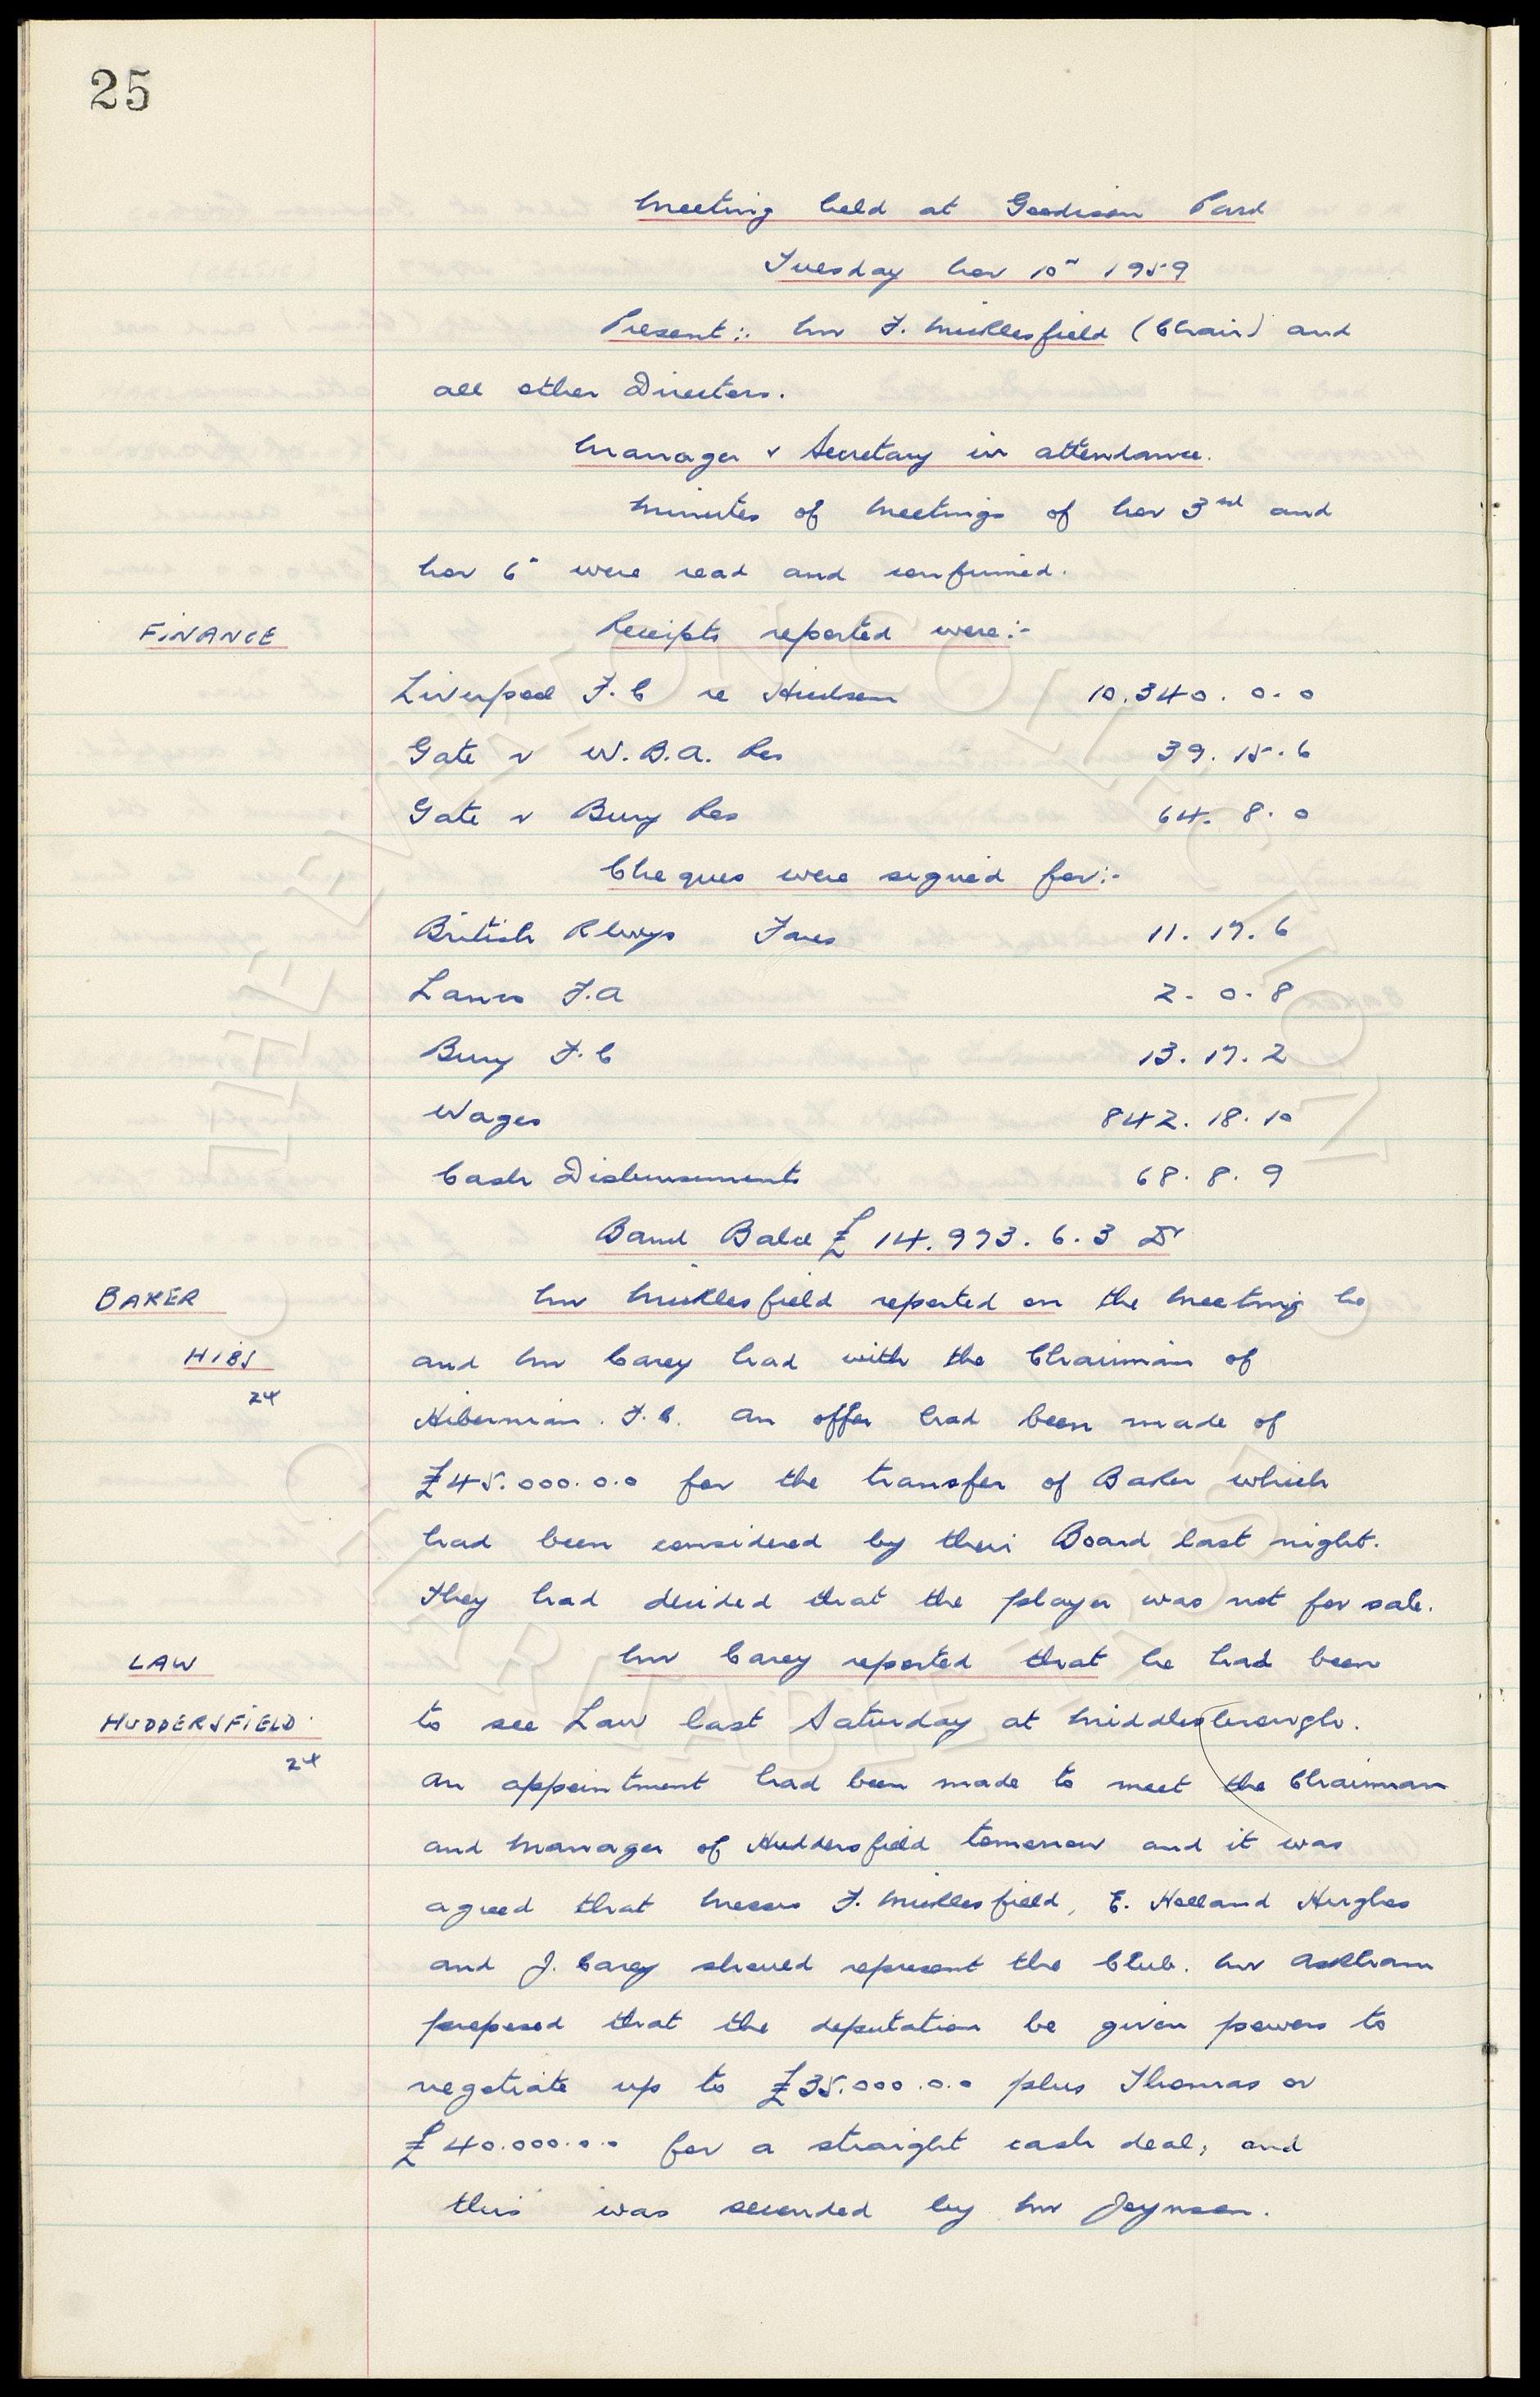 25
Meeting held at Goodison Park
Tuesday Nov 10th 1959
Present:- Mr F. Micklesfield (Chair) and
all other Directors.
Manager & Secretary in attendance.
Minutes of Meetings of Nov 3rd and
Nov 6th were read and confirmed.
FINANCE Receipts reported were:-
Liverpool F.C re Hickson 10.340. 0. 0
Gate v W.B.A. Res 39. 15. 6
Gate v Bury Res 64. 8. 0
Cheques were signed for:-
British Rlways Fares 11. 17. 6
Lancs F.A 2. 0. 8
Bury F.C 13. 17. 2
Wages 842. 18. 10
Cash Disbursements 68. 8. 9
Bank Balce £14.973. 6. 3 Dr
BAKER Mr Micklesfield reported on the Meeting he
HIBS and Mr Carey had with the Chairman of
24
Hibernian. F.C. An offer had been made of
£45.000.0.0 for the transfer of Baker which
had been considered by their Board last night.
They had decided that the player was not for sale.
LAW Mr Carey reported that he had been
HUDDERSFIELD to see Law last Saturday at Middlesbrough.
24
An appointment had been made to meet the Chairman
and Manager of Huddersfield tomorrow and it was
agreed that Messrs F. Micklesfield, E. Holland Hughes
and J. Carey should represent the Club. Mr Askham
proposed that the deputation be given powers to
negotiate up to £35.000.0.0 plus Thomas or
£40.000.0.0 for a straight cash deal, and
this was seconded by Mr Joynson.